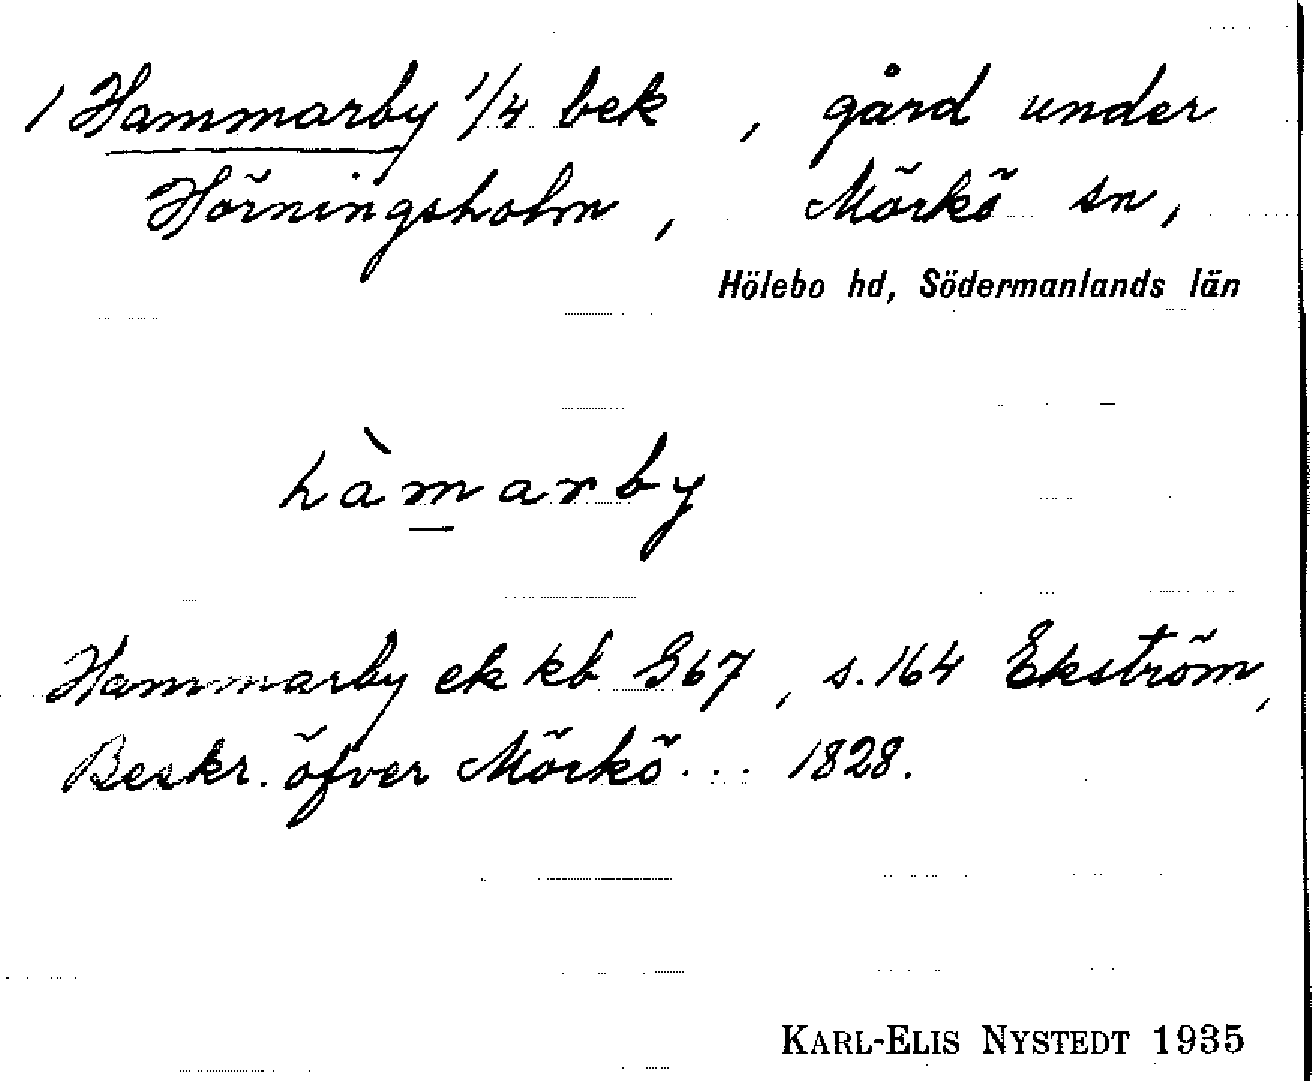 1 Hammarby 1/4 bek , gård under
Hörningsholm , Mörkö sn,
Hölebo hd, Södermanlands län
hàmarby
Hammarby ek kb G67, s.164 Ekström,
Beskr. öfver Mörkö ... 1828.
KARL-ELIS NYSTEDT 1935